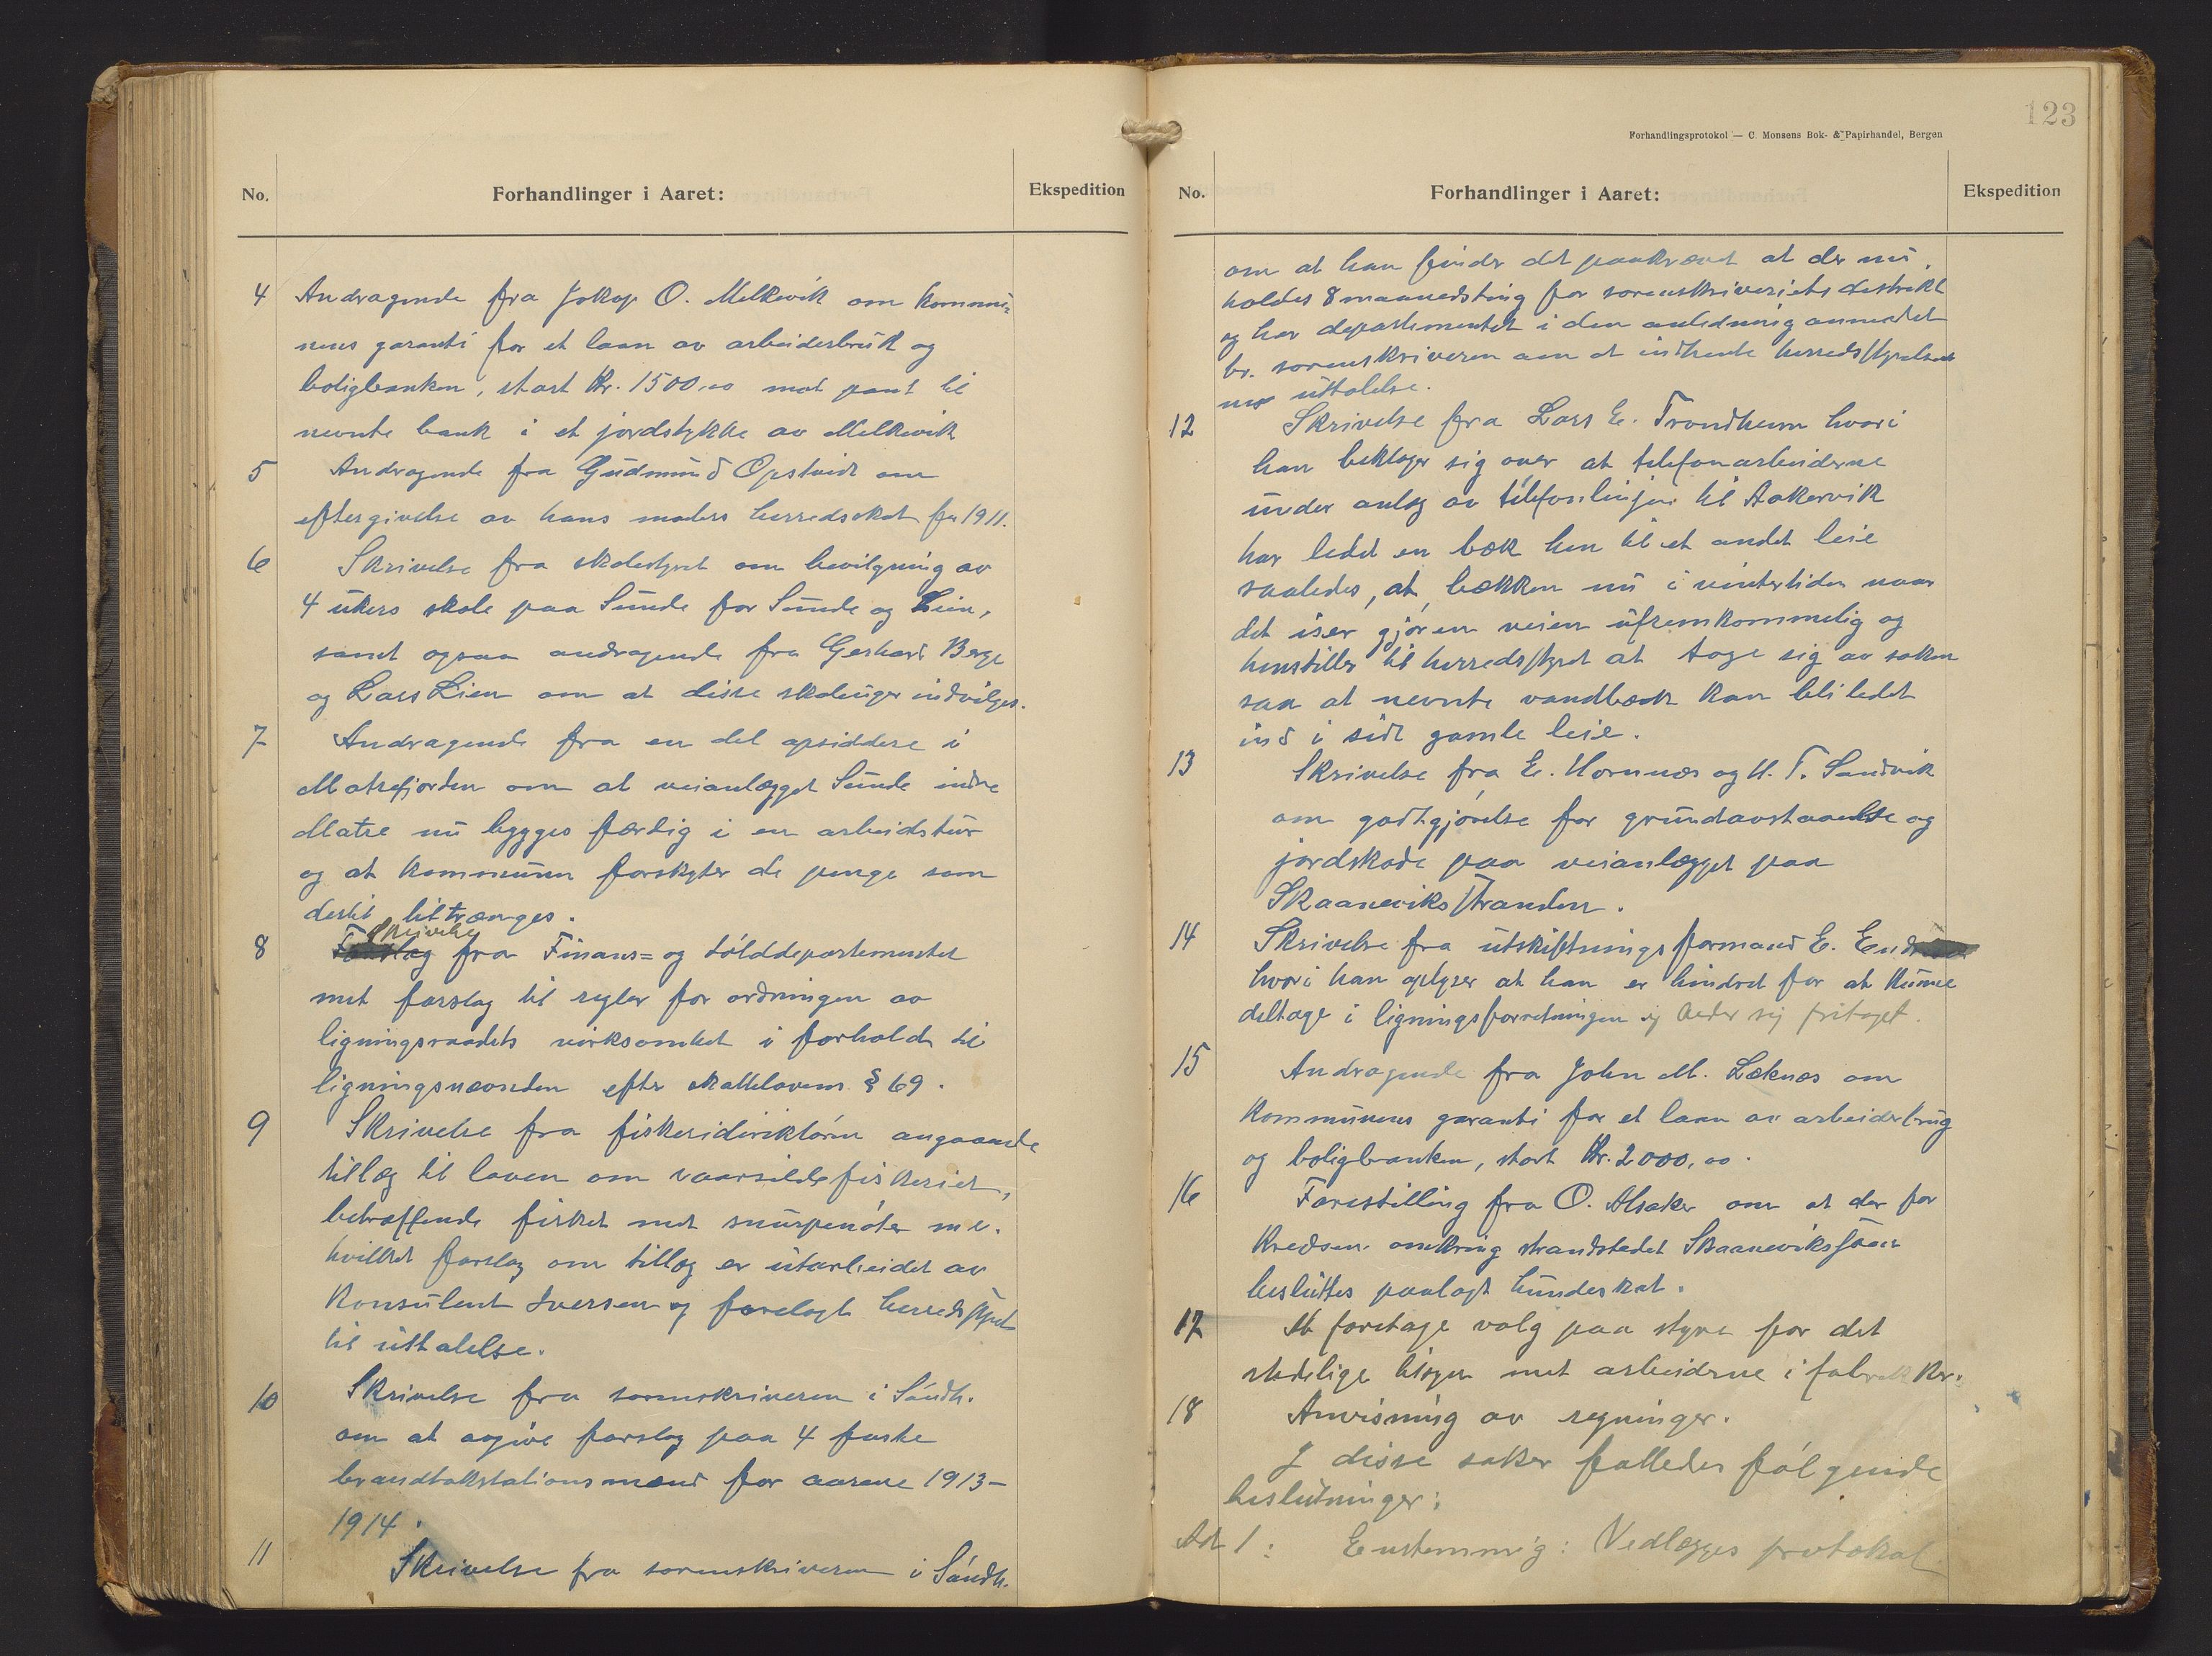 No. Forhandlinger i Aaret: Ekspedition
4 Andragende fra Jokop O. Melkevik om kommu=
nens garanti for et laan av arbeiderbruk og
boligbanken, stort Kr. 1500,00 mot pant til
nevnte bank i et jordstykke av Melkevik
5 Andragende fra Gudmund Opstveit om
eftergivelse av hans moders herredsskat for 1911.
6 Skrivelse fra skolestyret om bevilgning av
4 ukers skole paa Sunde for Sunde og Lien,
samt ogsaa andragende fra Gerhard Berge
og Lars Lien om at disse skoleuger indvilges.
7 Andragende fra en del opsiddere i
Matrefjorden om at veianlægget Sunde indre
Matre nu bygges færdig i en arbeidstur
og at kommunen forskyter de penge som
dertil tiltrænges.
Skrivelse
8 fra Finans= og tolddepartementet
met forslag til regler for ordningen av
ligningsraadets virksomhet i forhold til
ligningsnævnden efter skattelovens § 69.
9 Skrivelse fra fiskeridirektøren angaaende
tillæg til loven om vaarsildefiskeriet,
betræffende fisket met snurpenøter m.v.
hvilket forslag om tillæg er utarbeidet av
konsulent Iversen og forelagt herredsstyret
til uttalelse.
10 Skrivelse fra sorenskriveren i Søndh.
om at avgive forslag paa 4 faste
brandtakstationsmænd for aarene 1913-
1914.
11 Skrivelse fra sorenskriveren i Søndh.
123
Forhandlingsprotokol — C. Monsens Bok- & Papirhandel, Bergen
No. Forhandlinger i Aaret: Ekspedition
om at han finder det paakrævet at der nu
holdes 8 maanedsting for sorenskriveriets destrikt
og har departementet i den anledning anmodet
hr. sorenskriveren om at indhente herredsstyrelsens
uttalelse.
12 Skrivelse fra Lars E. Trondheim hvori
han beklager sig over at telefonarbeiderne
under anlæg av telefonlinjen til Aakervik
har ledet en bæk hen til et andet leie
saaledes, at bækken nu i vintertiden naar
det iser gjør en veien ufremkommelig og
henstiller til herredsstyret at tage sig av saken
saa at nevnte vandbæk kan bli ledet
ind i sidt gamle leie.
13 Skrivelse fra E. Hornnæs og H. T. Sandvik
om godtgjørelse for grundavstaaelse og
jordskade paa veianlægget paa
Skaaneviksstranden.
14 Skrivelse fra utskiftningsformand E.
hvori han oplyser at han er hindret for at kunne
deltage i ligningsforretningen og beder sig fritaget.
15 Andragende fra John M. Læknes om
kommunens garanti for et laan av arbeiderbrug
og boligbanken, stort Kr. 2000,00.
16 Forestilling fra O. Alsaker om at der for
kredsen omkring strandstedet Skaaneviksjøen
besluttes paalagt hundeskat.
17 At foretage valg paa styre for det
stedelige tilsyn met arbeiderne i fabrikker.
18 Anvisning av regninger.
I disse saker fattedes følgende
beslutninger:
Ad 1: Enstemmig: Vedlægges protokol